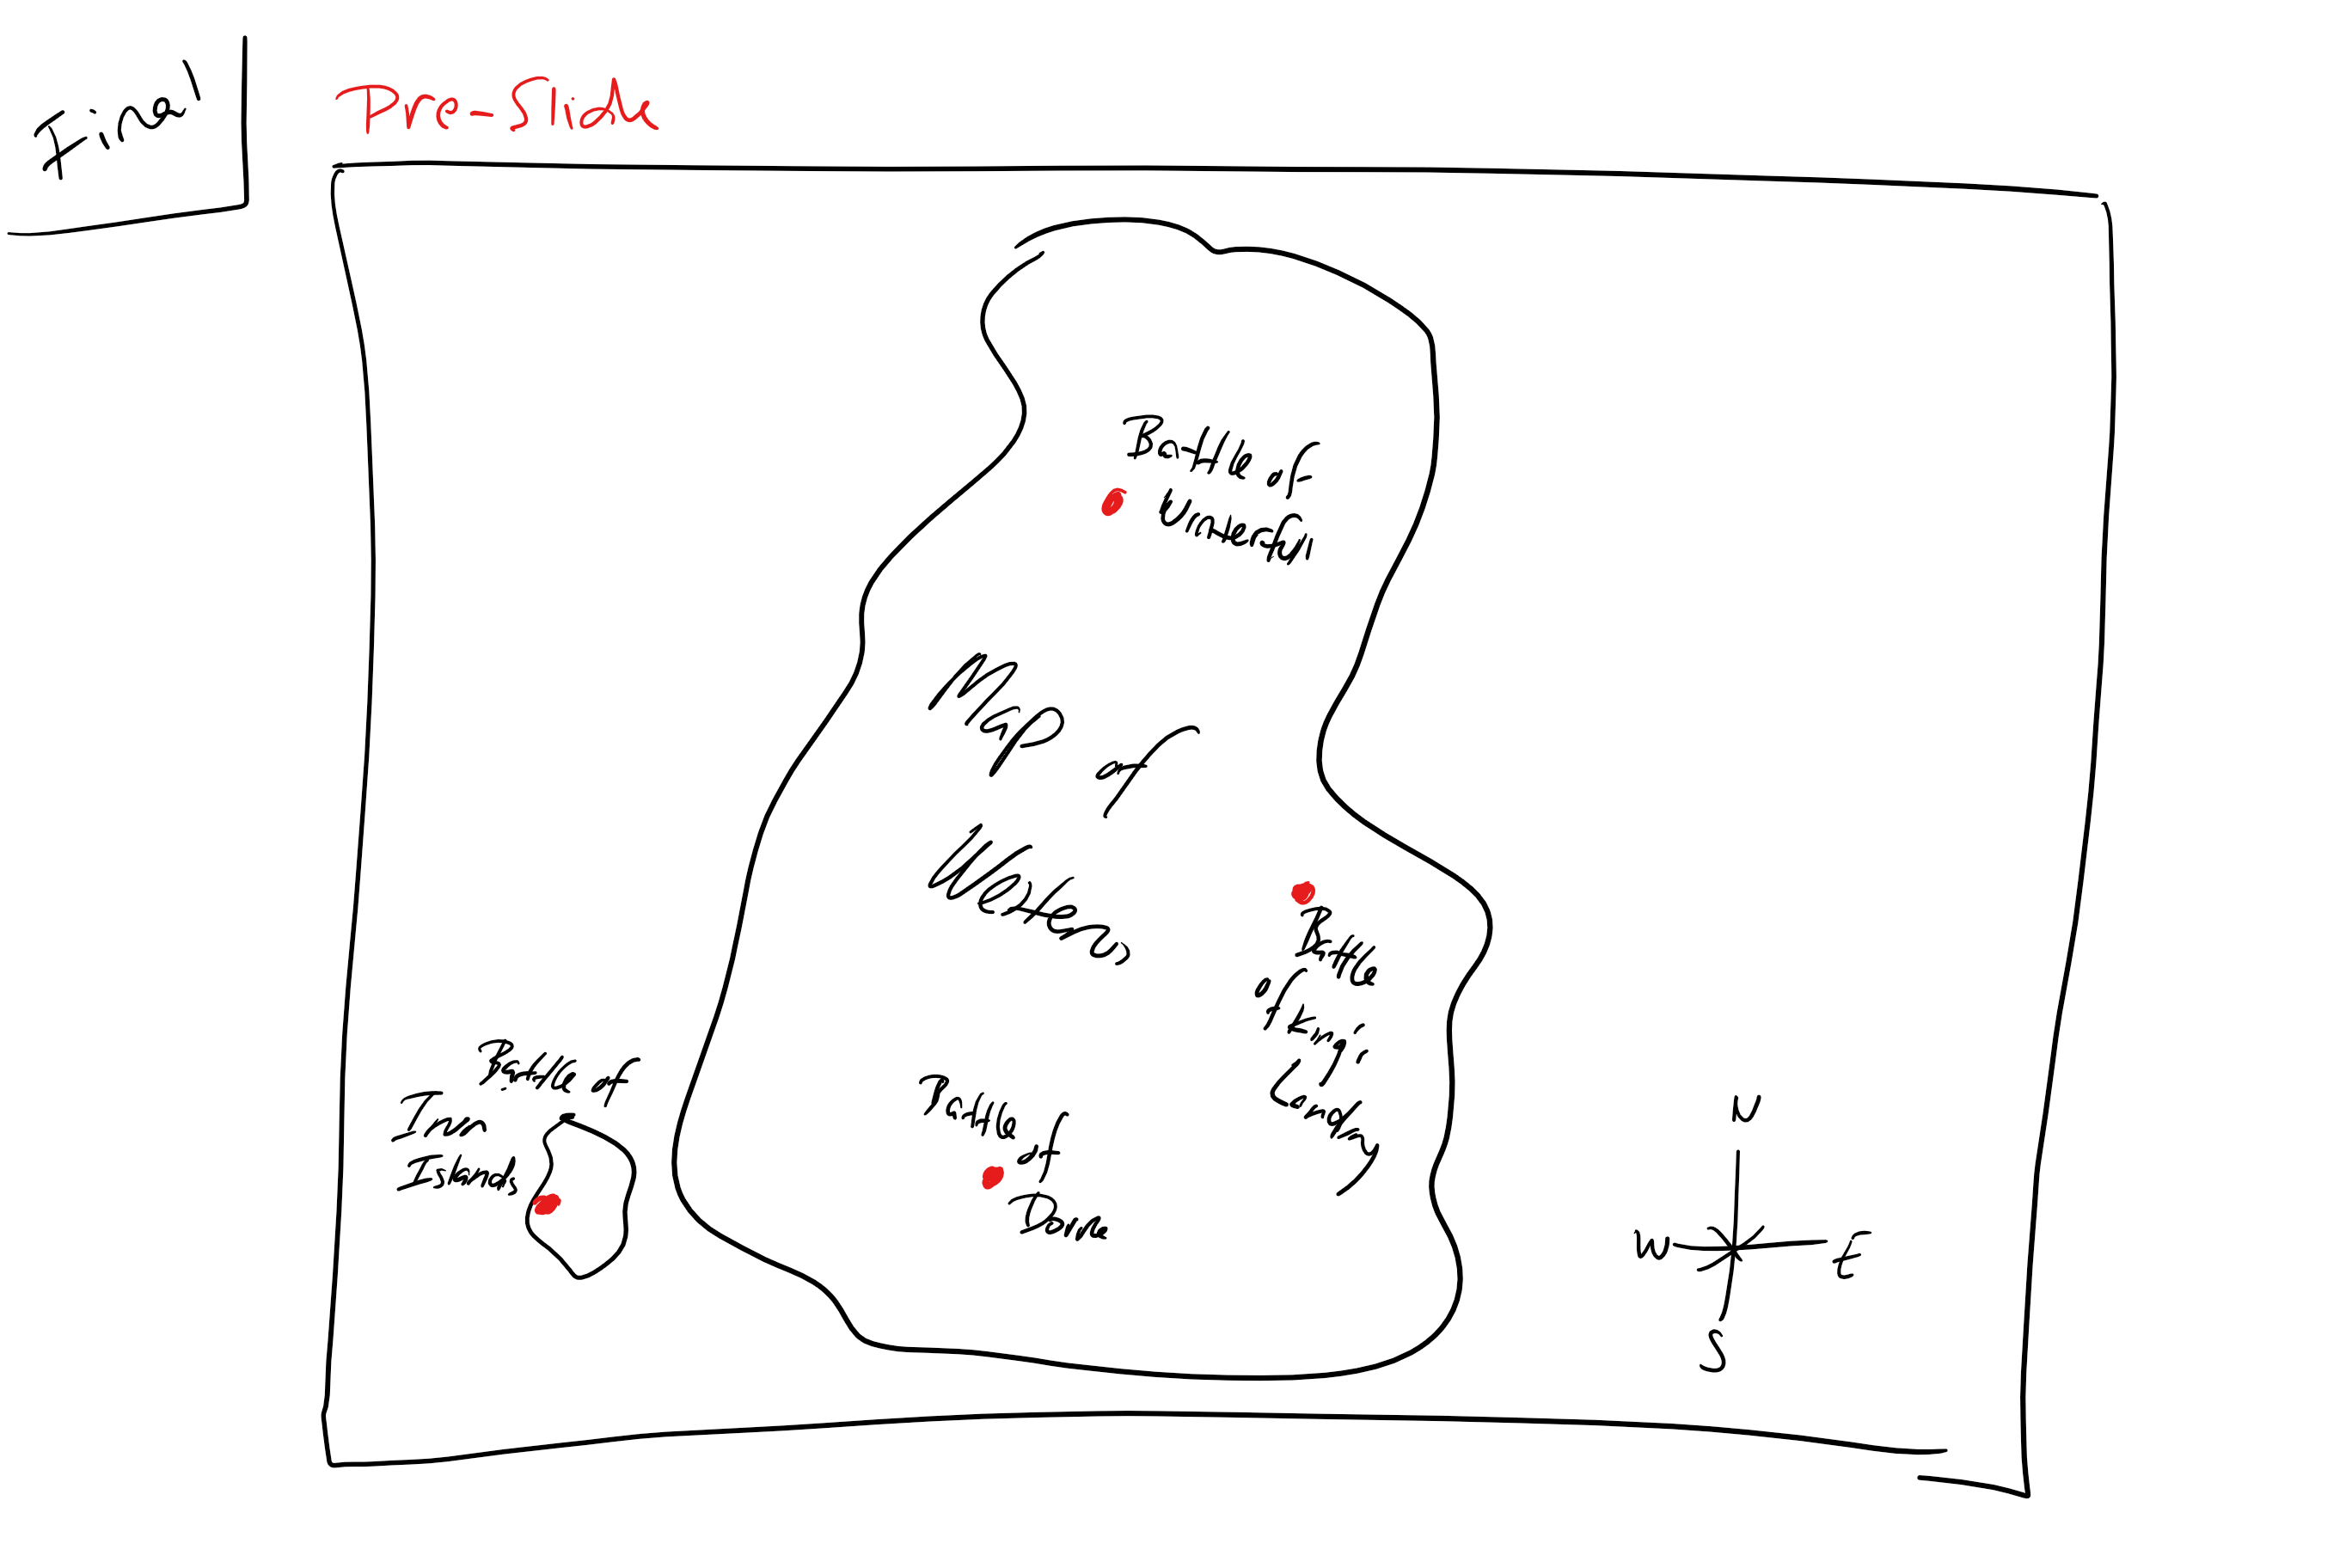 Final
Pre-Slide
Battle of
Winterfell
Map of
Westeros
Battle
of King's
Landing
Battle of
Iron
Islands
Battle
of
Dorne
N
W
E
S